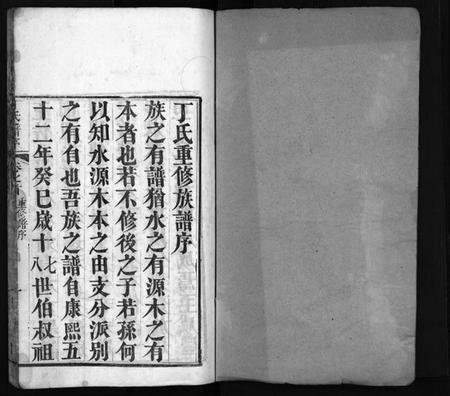 丁氏重修族譜序
族之有譜猶水之有源木之有
本者也若不修後之子若孫何
以知水源木本之由支分派別
之有自也吾族之譜自康熙五
十二年癸巳歲十七八世伯叔祖
氏譜
重修譜序